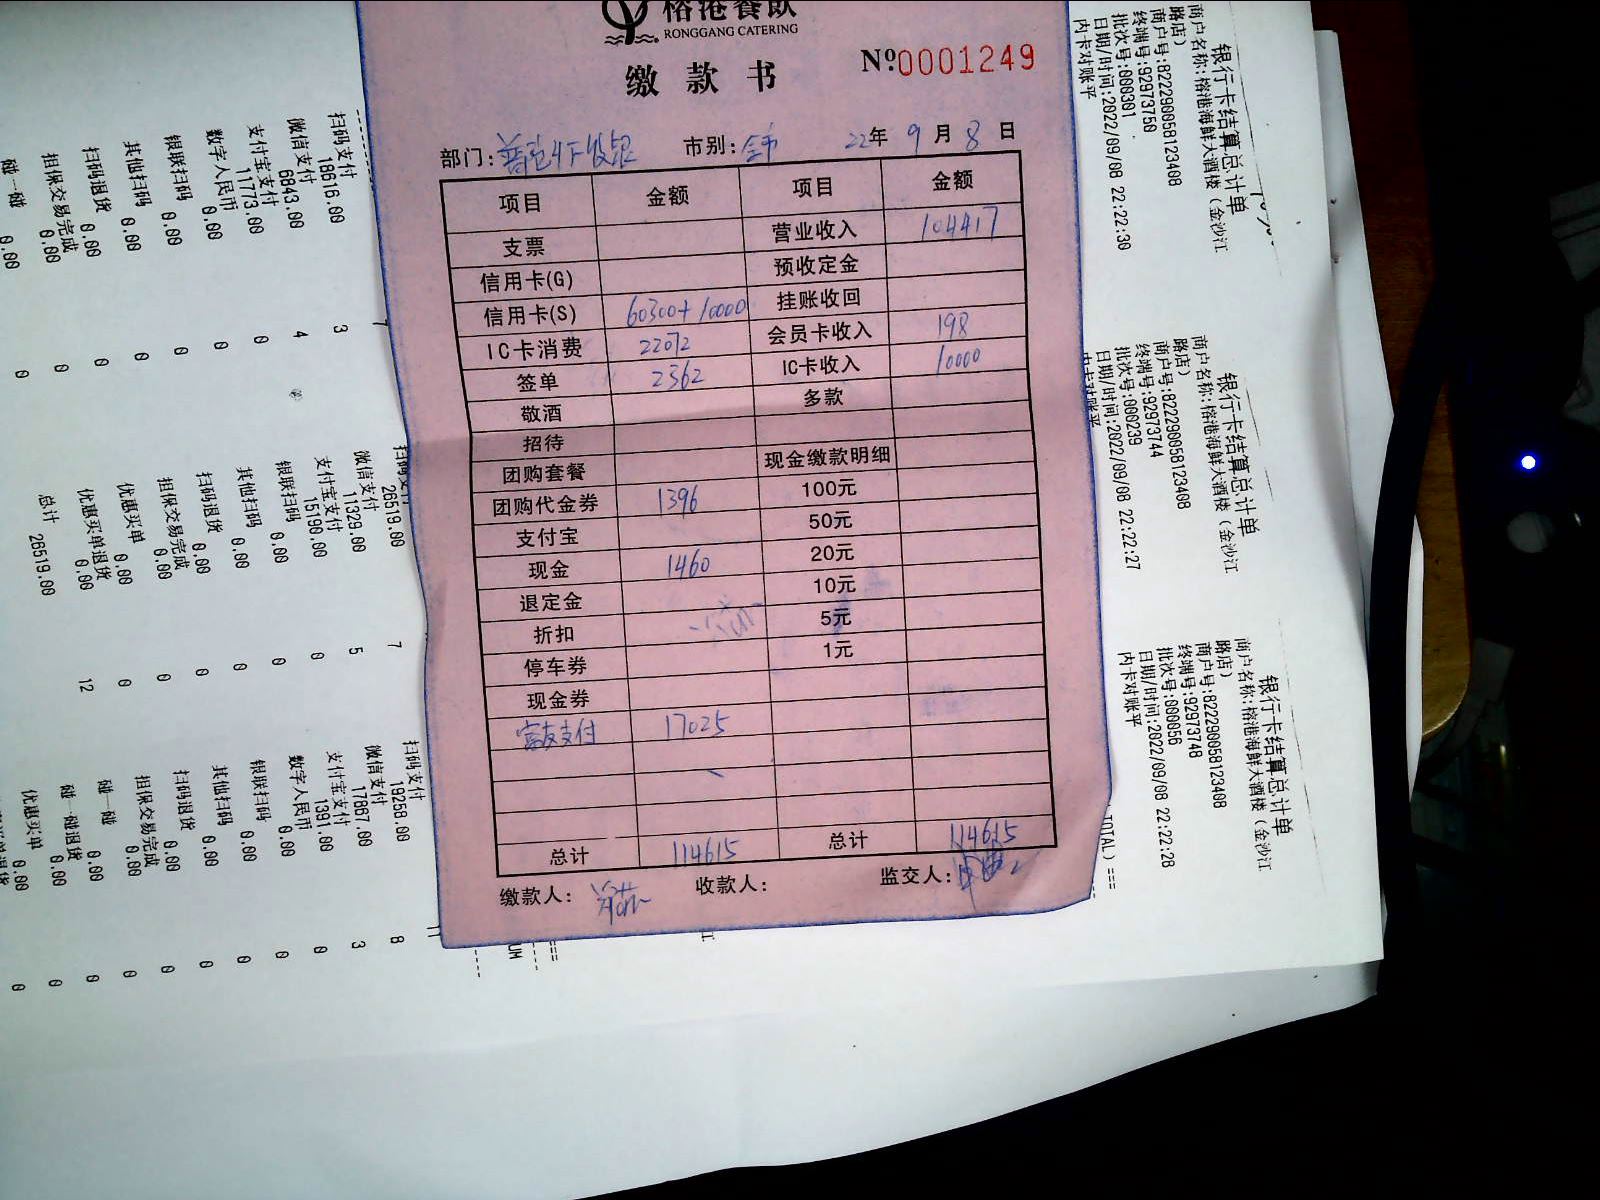 榕港餐飲
RONGGANG CATERING
缴款书
№0001249
部门: 市别: 22年 9月 8日
项目 金额 项目 金额
支票 营业收入 104417
信用卡(G) 预收定金
信用卡(S) 60300+10000 挂账收回
IC卡消费 22072 会员卡收入 198
签单 2362 IC卡收入 10000
敬酒 多款
招待
团购套餐 现金缴款明细
团购代金券 1396 100元
支付宝 50元
现金 1460 20元
退定金 10元
折扣 5元
停车券 1元
现金券
富友支付 17025
总计 114615 总计 114615
缴款人: 收款人: 监交人:
银行卡结算总计单
商户名称:榕港海鲜大酒楼(金沙江
路店)
商户号:822290058123408
终端号:92973750
批次号:000301
日期/时间:2022/09/08 22:22:30
内卡对账平
扫码支付 3
18616.00
微信支付 4
6843.00
支付宝支付 0
11773.00
数字人民币 0
0.00
银联扫码 0
0.00
其他扫码 0
0.00
扫码退货 0
0.00
担保交易完成 0
0.00
碰一碰
0.00
银行卡结算总计单
商户名称:榕港海鲜大酒楼(金沙江
路店)
商户号:822290058123408
终端号:92973744
批次号:000239
日期/时间:2022/09/08 22:22:27
内卡对账平
扫码支付 7
26519.00
微信支付 5
11329.00
支付宝支付 0
15190.00
银联扫码 0
0.00
其他扫码 0
0.00
扫码退货 0
0.00
担保交易完成 0
0.00
优惠买单 0
0.00
优惠买单退货
0.00
总计 12
26519.00
银行卡结算总计单
商户名称:榕港海鲜大酒楼(金沙江
路店)
商户号:822290058123408
终端号:92973748
批次号:000056
日期/时间:2022/09/08 22:22:28
内卡对账平
TOTAL)===
扫码支付 11
19258.00
微信支付 8
17867.00
支付宝支付 3
1391.00
数字人民币 0
0.00
银联扫码 0
0.00
其他扫码 0
0.00
扫码退货 0
0.00
担保交易完成 0
0.00
碰一碰 0
0.00
碰一碰退货 0
0.00
优惠买单 0
0.00